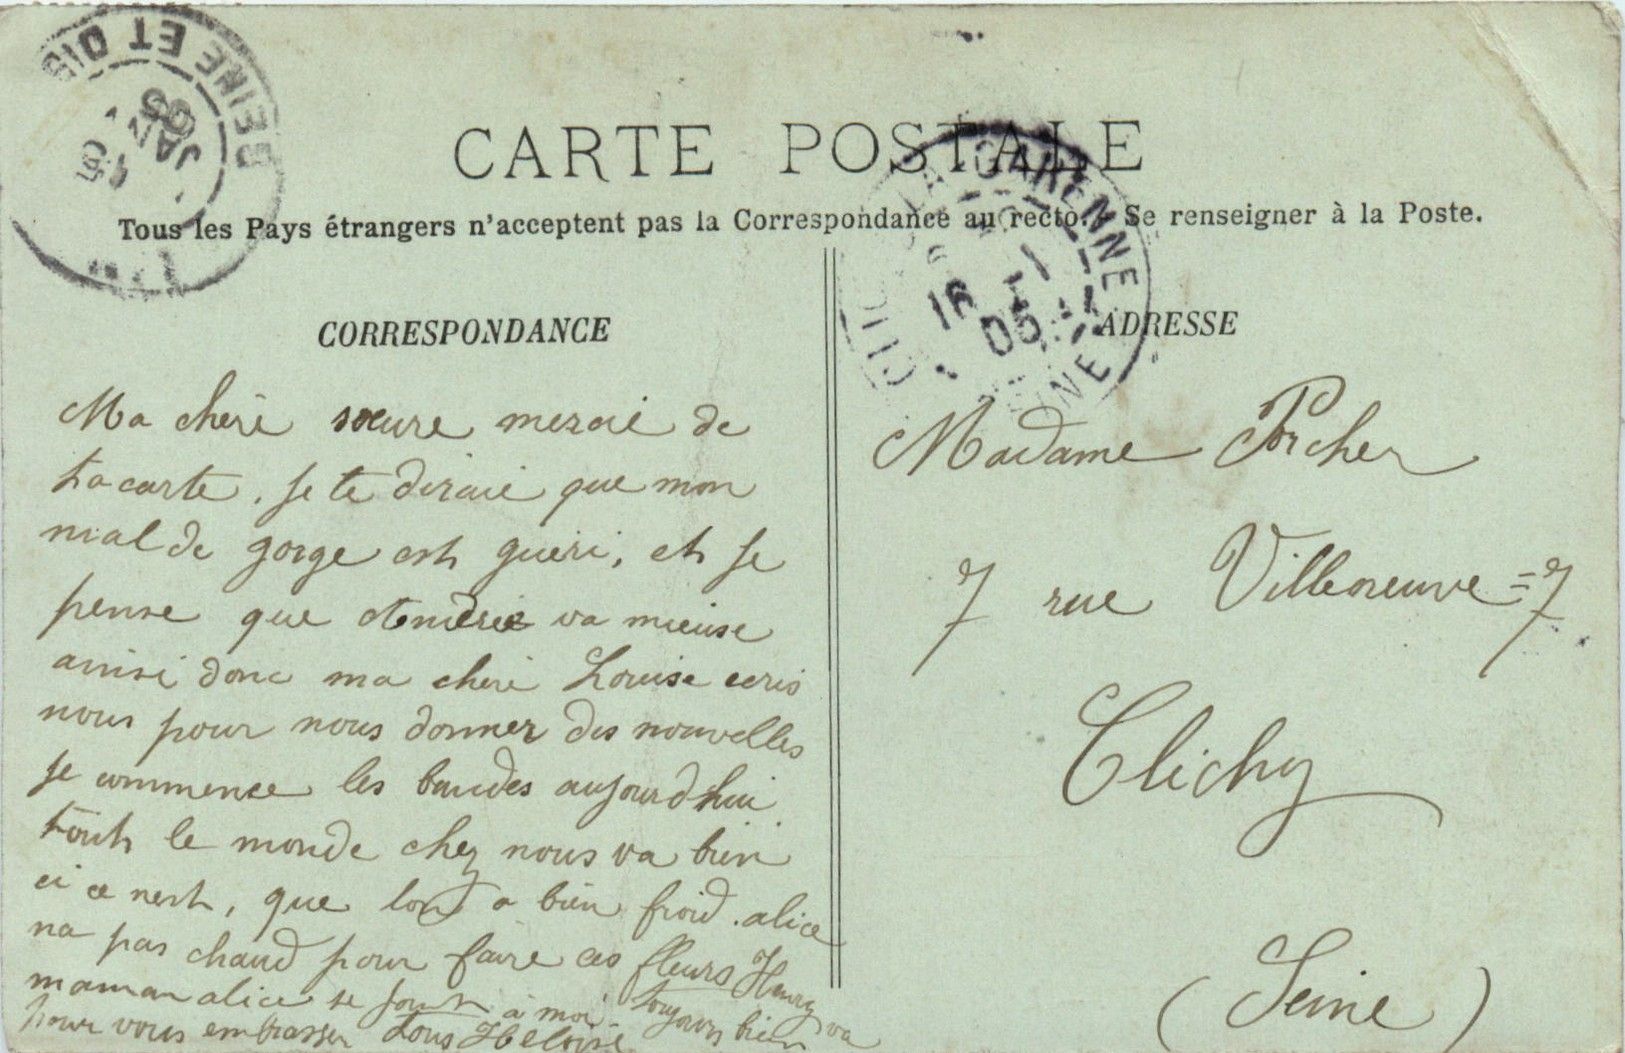 SEINE ET OISE
JANV
05
CARTE POSTALE
LA GARENNE
Tous les Pays étrangers n'acceptent pas la Correspondance au recto. - Se renseigner à la Poste.
16 1
05
CORRESPONDANCE
ADRESSE
Ma cheri sœure merçie de
ta carte, je te diraie que mon
mal de gorge est gueri, et je
pense que va mieuse
ainsi donc ma cheri Louise ecris
nous pour nous donner des nouvelles
je commence les bandes aujourd'hui
tout le monde chez nous va bien
ci ce nest, que lon a bien froid. alice
na pas chaud pour faire ces fleurs Henry va
maman alice se joint à moi toujours bien
pour vous embrasser tous Heloise
Madame Porcher
7 rue Villeneuve = 7
Clichy
(Seine)